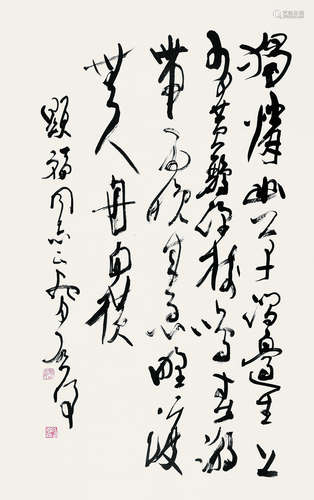 獨憐幽草澗邊生上
有黄鸝深樹鳴春潮
帶雨晚來急野渡
無人舟自横
顯福同志